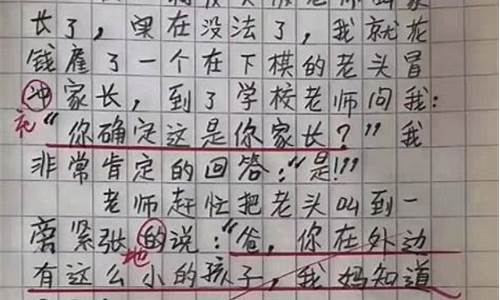 长了，实在没法了，我就花
钱雇了一个在下棋的老头冒
冲家长，到了学校老师问我：
充
“你确定这是你家长？”我
非常肯定的回答：“是!!!”
老师赶忙把老头叫到一
旁紧张的说：“爸，你在外边
地
有这么小的孩子，我妈知道